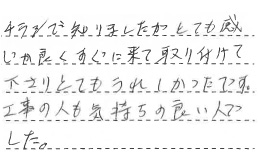 チラシで知りましたがとても感
じが良くすぐに来て取り付けて
下さりとてもうれしかったです。
工事の人も気持ちの良い人で
した。